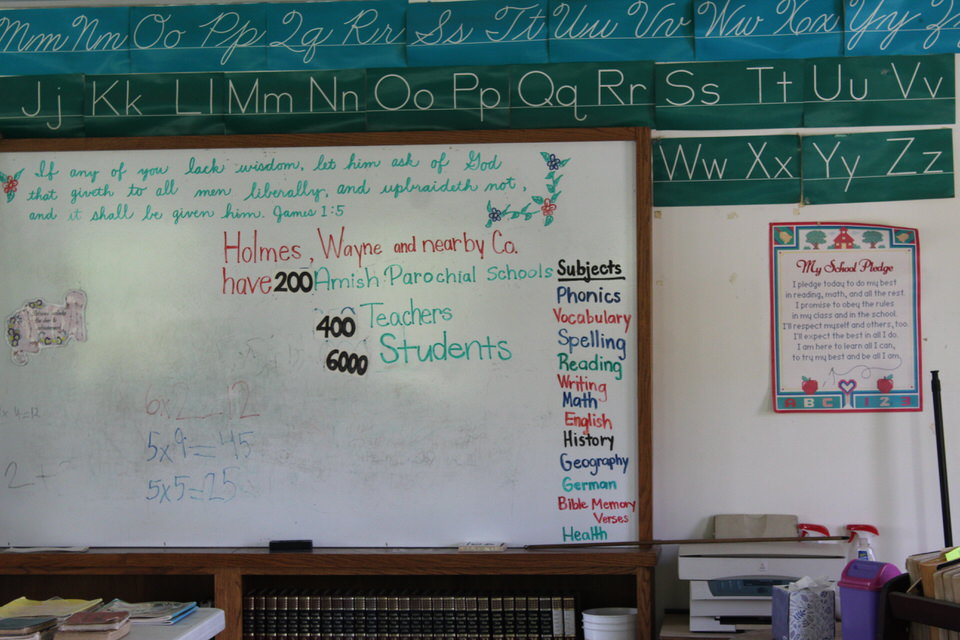 Mm Nn Oo Pp Qq Rr Ss Tt Uu Vv Ww Xx Yy Z
Jj Kk Ll Mm Nn Oo Pp Qq Rr Ss Tt Uu Vv
Ww Xx Yy Zz
If any of you lack wisdom, let him ask of God
that giveth to all men liberally, and upbraideth not,
and it shall be given him. James 1:5
Holmes, Wayne and nearby Co.
have 200 Amish Parochial Schools
400 Teachers
6000 Students
5x9=45
5x5=25
2 +
Subjects
Phonics
Vocabulary
Spelling
Reading
Writing
Math
English
History
Geography
German
Bible Memory
Verses
Health
My School Pledge
I pledge today to do my best
in reading, math, and all the rest.
I promise to obey the rules
in my class and in the school.
I'll respect myself and others, too.
I'll expect the best in all I do.
I am here to learn all I can,
to try my best and be all I am.
A B C 1 2 3